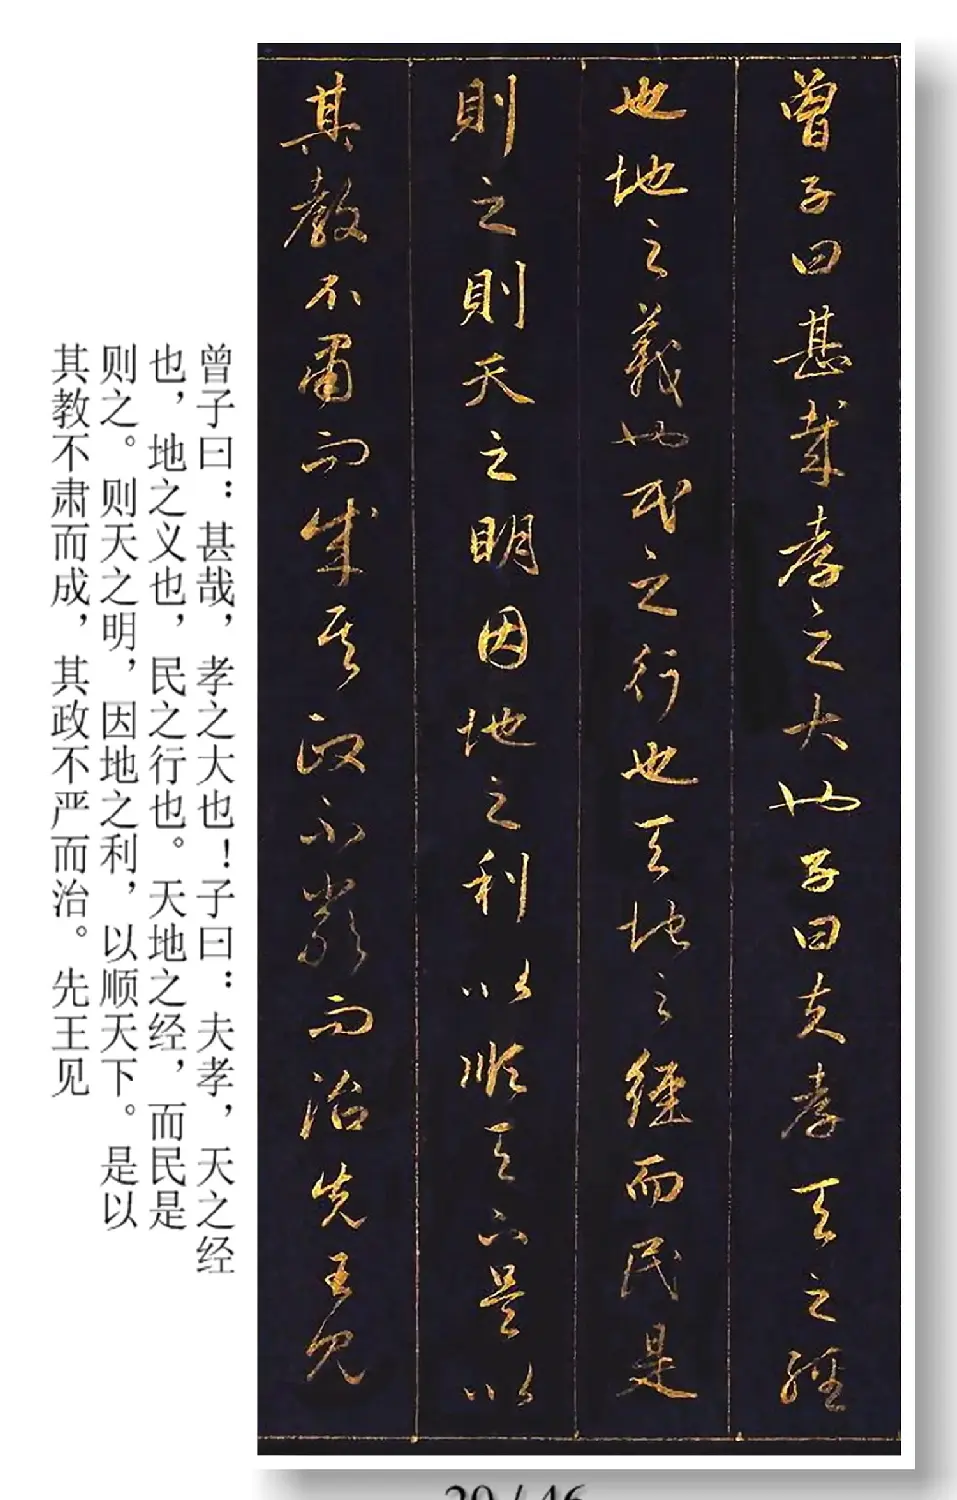 曾子曰甚哉孝之大也子曰夫孝天之經
也地之義也民之行也天地之經而民是
則之則天之明因地之利以順天下是以
其教不肅而成其政不嚴而治先王見
曾子曰：甚哉，孝之大也！子曰：夫孝，天之经
也，地之义也，民之行也。天地之经，而民是
则之。则天之明，因地之利，以顺天下。是以
其教不肃而成，其政不严而治。先王见
20 / 46